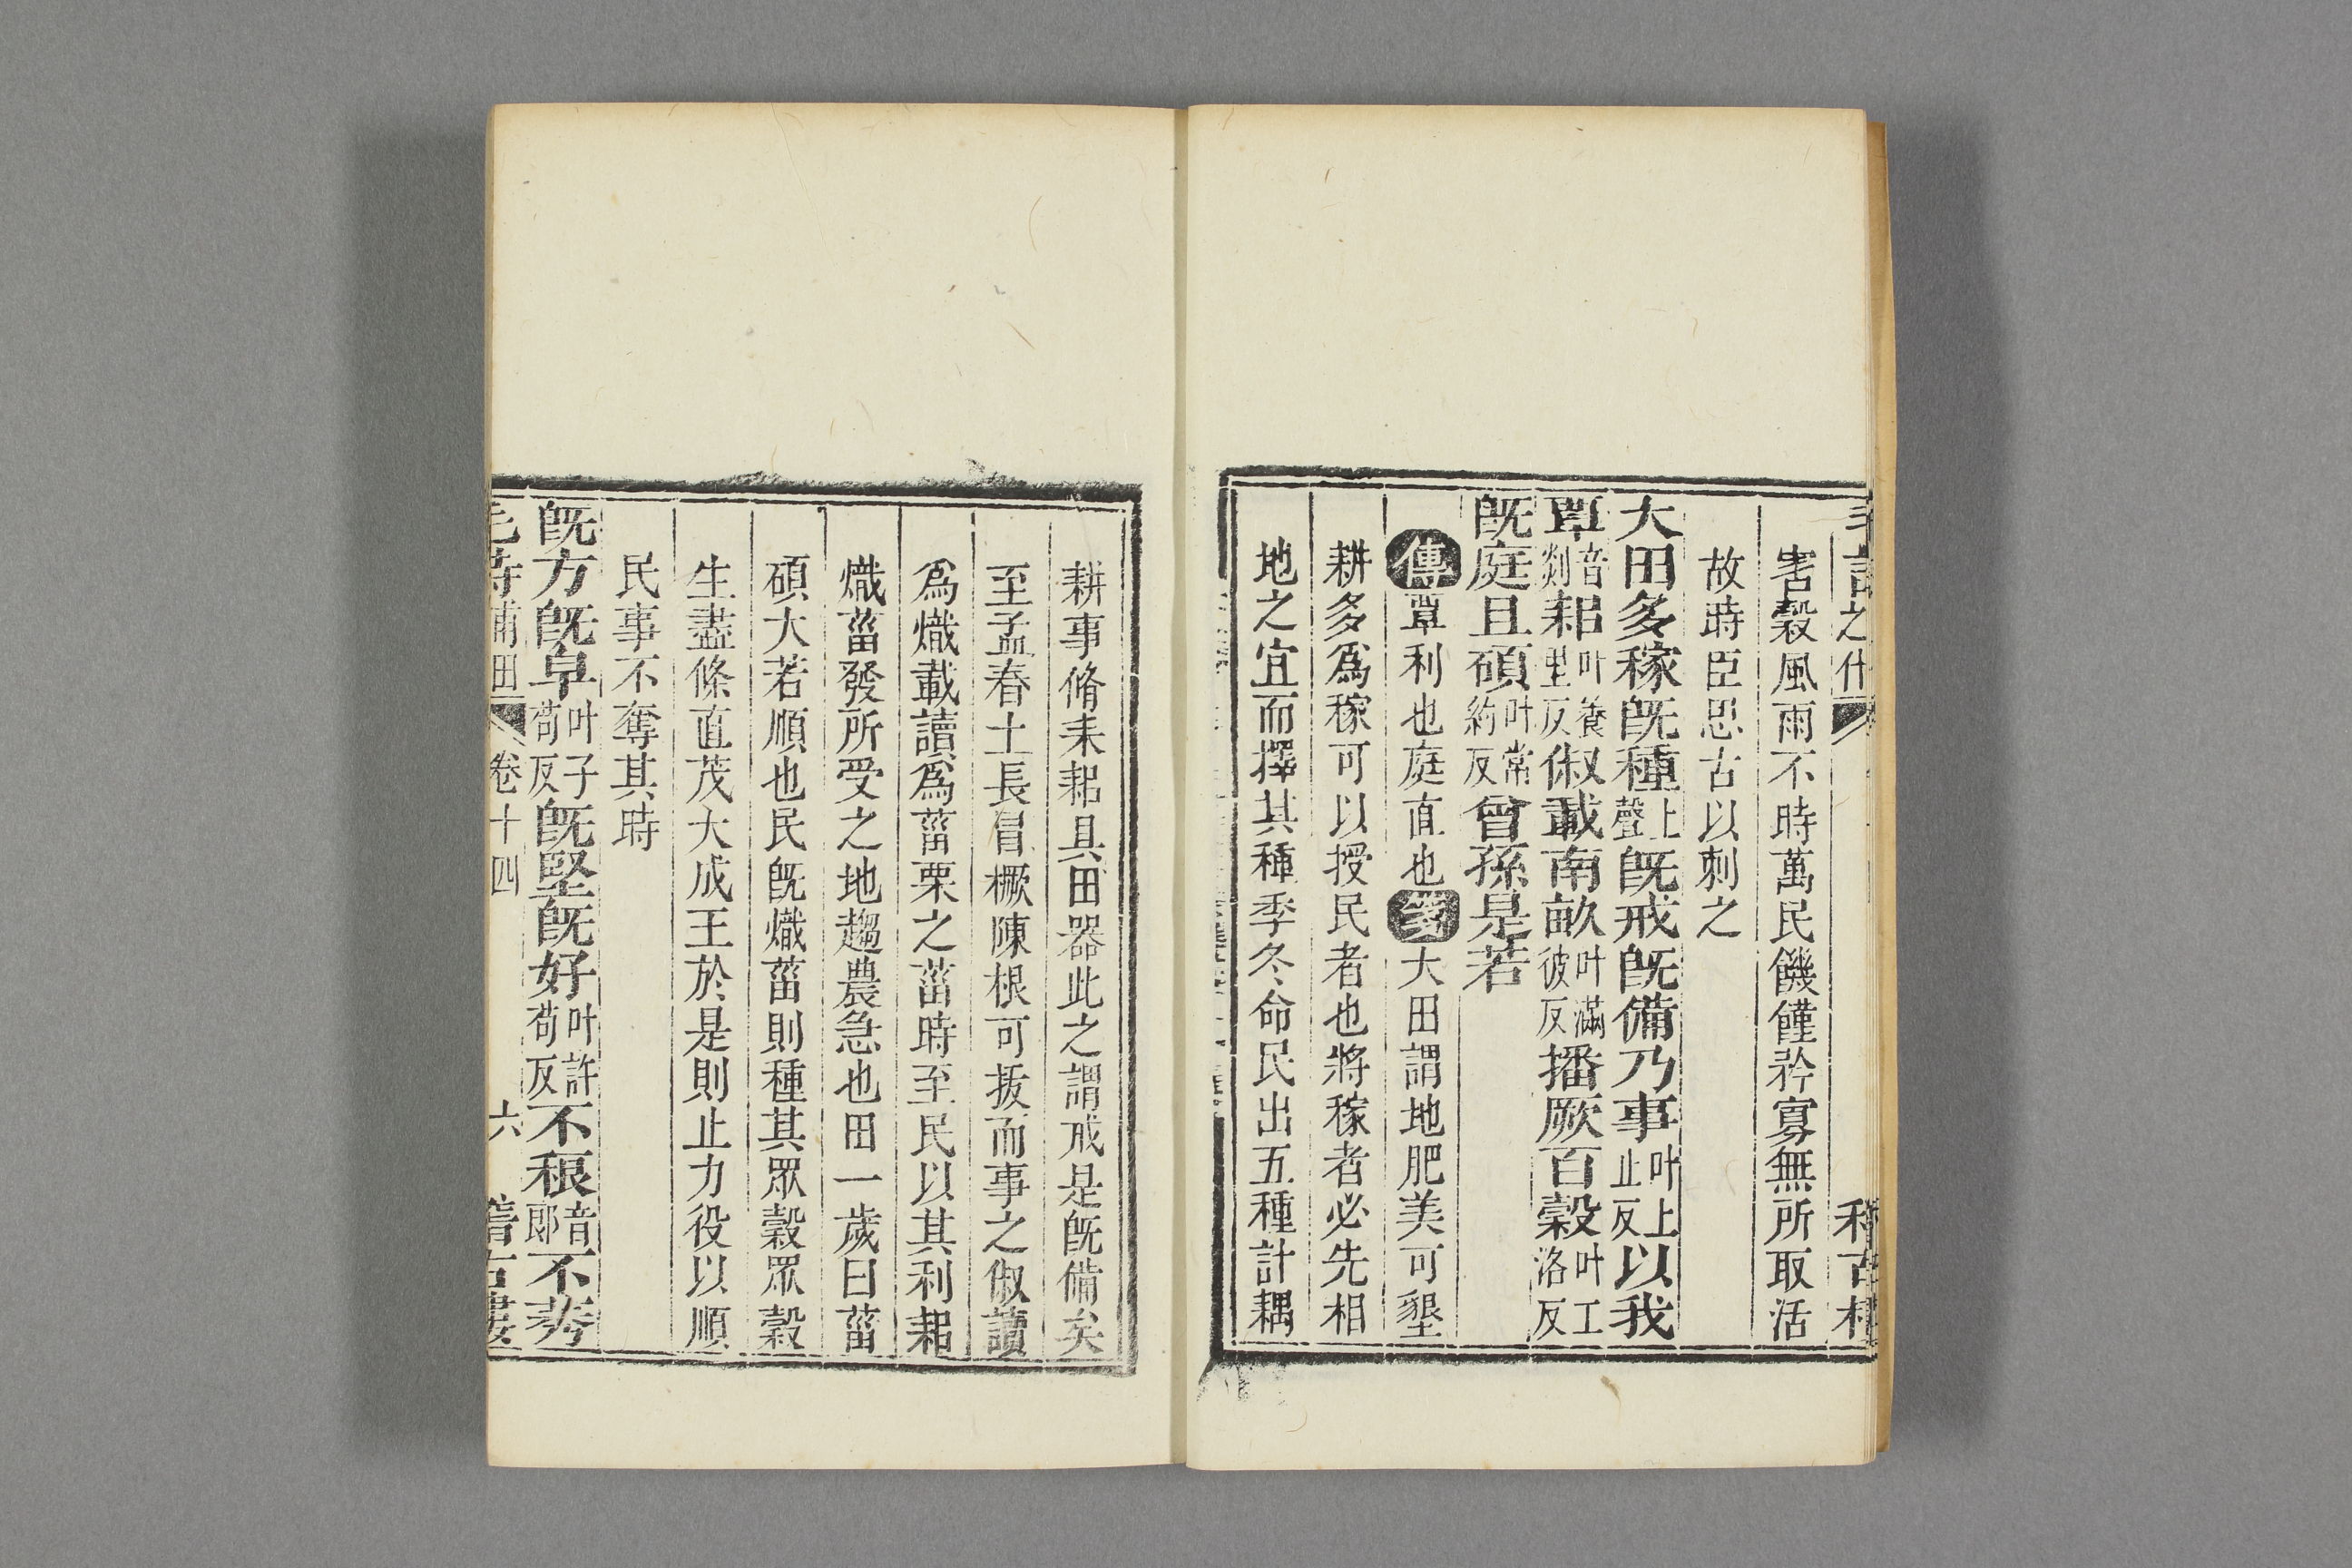 害穀風雨不時萬民饑饉矜寡無所取活
故時臣思古以刺之
大田多稼既種上聲既戒既備乃事叶上止反以我
覃音剡耜叶養里反俶載南畝叶滿彼反播厥百穀叶工洛反
既庭且碩叶常約反曾孫是若
傳覃利也庭直也箋大田謂地肥美可墾
耕多爲稼可以授民者也將稼者必先相
地之宜而擇其種季冬命民出五種計耦
耕事脩耒耜具田器此之謂戒是既備矣
至孟春土長冒橛陳根可拔而事之俶讀
爲熾載讀爲菑栗之菑時至民以其利耜
熾菑發所受之地趨農急也田一歲曰菑
碩大若順也民既熾菑則種其眾穀眾穀
生盡條直茂大成王於是則止力役以順
民事不奪其時
既方既皁叶子苟反既堅既好叶許苟反不稂音郎不莠
毛詩甫田 卷十四 六 稽古樓